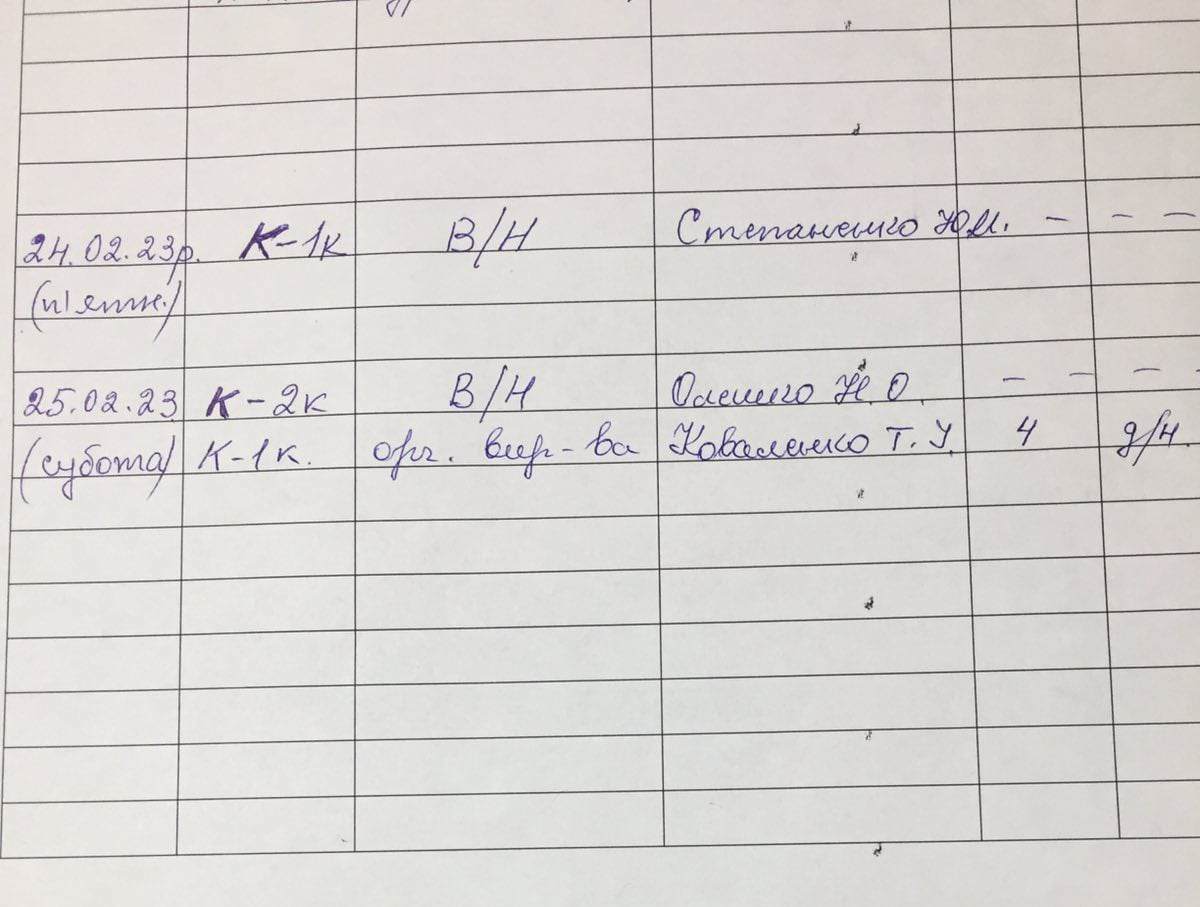 24.02.23р. К-1к В/Н Степаненко Ю.М. - - -
(п'ятн.)
25.02.23 К-2к В/Н Олешко Н.О. - - - -
(субота) К-1к. орг. вир-ва Коваленко Т.У. 4 д/н.